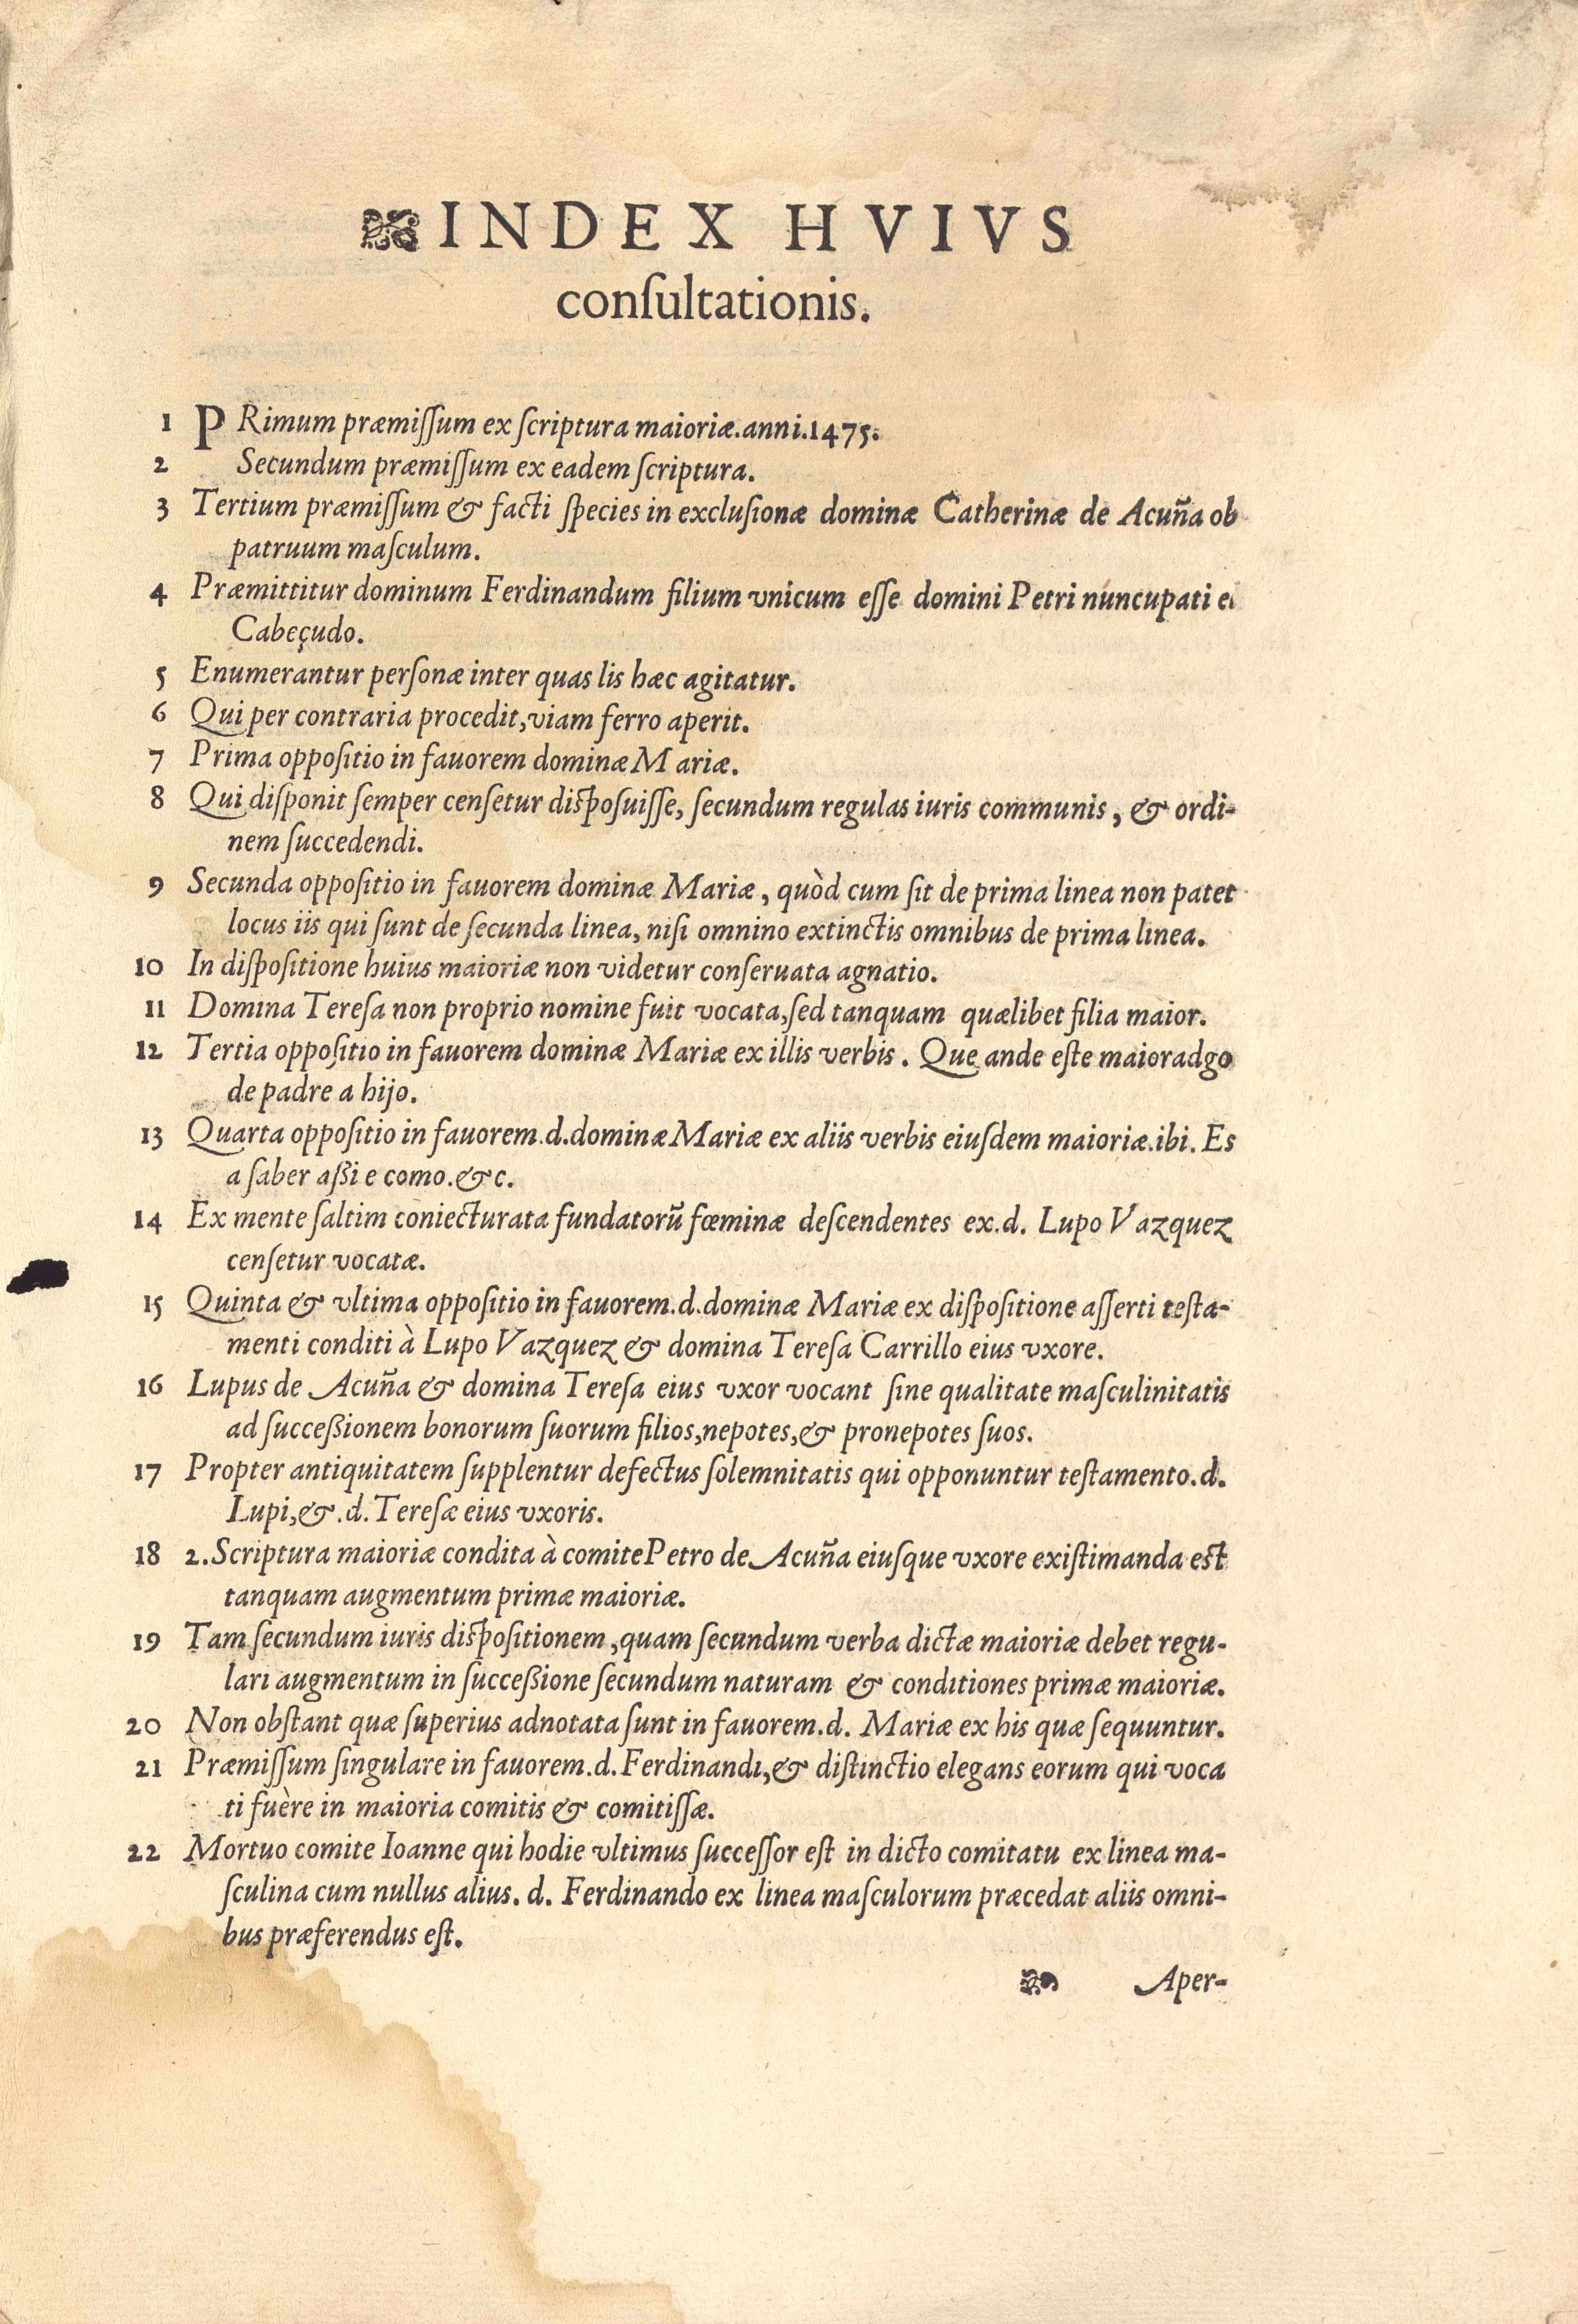 INDEX HVIVS
conſultationis.
1 PRimum præmiſſum ex ſcriptura maioriæ.anni.1475.
2 Secundum præmiſſum ex eadem ſcriptura.
3 Tertium præmiſſum & facti ſpecies in excluſionæ dominæ Catherinæ de Acuña ob
patruum maſculum.
4 Præmittitur dominum Ferdinandum filium vnicum eſſe domini Petri nuncupati el
Cabeçudo.
5 Enumerantur perſonæ inter quas lis hæc agitatur.
6 Qui per contraria procedit,viam ferro aperit.
7 Prima oppoſitio in fauorem dominæ Mariæ.
8 Qui diſponit ſemper cenſetur diſpoſuiſſe, ſecundum regulas iuris communis, & ordi-
nem ſuccedendi.
9 Secunda oppoſitio in fauorem dominæ Mariæ, quòd cum ſit de prima linea non patet
locus iis qui ſunt de ſecunda linea, niſi omnino extinctis omnibus de prima linea.
10 In diſpoſitione huius maioriæ non videtur conſeruata agnatio.
11 Domina Tereſa non proprio nomine fuit vocata,ſed tanquam quælibet filia maior.
12 Tertia oppoſitio in fauorem dominæ Mariæ ex illis verbis. Que ande eſte maioradgo
de padre a hijo.
13 Quarta oppoſitio in fauorem.d.dominæ Mariæ ex aliis verbis eiuſdem maioriæ.ibi. Es
a ſaber aßi e como.&c.
14 Ex mente ſaltim coniecturata fundatorũ fœminæ deſcendentes ex.d. Lupo Vazquez
cenſetur vocatæ.
15 Quinta & vltima oppoſitio in fauorem.d.dominæ Mariæ ex diſpoſitione aſſerti teſta-
menti conditi à Lupo Vazquez & domina Tereſa Carrillo eius vxore.
16 Lupus de Acuña & domina Tereſa eius vxor vocant ſine qualitate maſculinitatis
ad ſucceßionem bonorum ſuorum filios,nepotes,& pronepotes ſuos.
17 Propter antiquitatem ſupplentur defectus ſolemnitatis qui opponuntur teſtamento.d.
Lupi,&.d.Tereſæ eius vxoris.
18 2.Scriptura maioriæ condita à comite Petro de Acuña eiuſque vxore exiſtimanda eſt
tanquam augmentum primæ maioriæ.
19 Tam ſecundum iuris diſpoſitionem,quam ſecundum verba dictæ maioriæ debet regu-
lari augmentum in ſucceßione ſecundum naturam & conditiones primæ maioriæ.
20 Non obſtant quæ ſuperius adnotata ſunt in fauorem.d. Mariæ ex his quæ ſequuntur.
21 Præmiſſum ſingulare in fauorem.d.Ferdinandi,& diſtinctio elegans eorum qui voca
ti fuère in maioria comitis & comitiſſæ.
22 Mortuo comite Ioanne qui hodie vltimus ſucceſſor eſt in dicto comitatu ex linea ma-
ſculina cum nullus alius.d. Ferdinando ex linea maſculorum præcedat aliis omni-
bus præferendus eſt.
Aper-